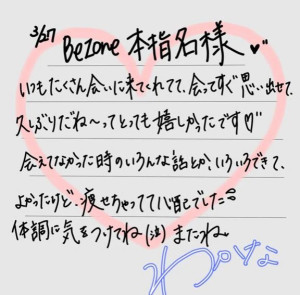 3/27
BeZone 本指名様♡"
いつもたくさん会いに来てくれてて、会ってすぐ思い出せて、
久しぶりだね～ってとっても嬉しかったです♡"
会えてなかった時のいろんな話とか、いろいろできて、
よかったけど、痩せちゃってて心配でした
体調に気をつけてね(泣)またね。